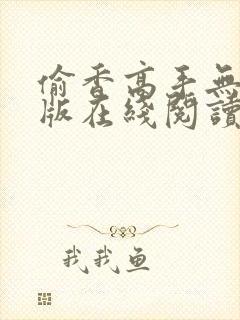 偷香高手無
版在綫閱讀
我我鱼